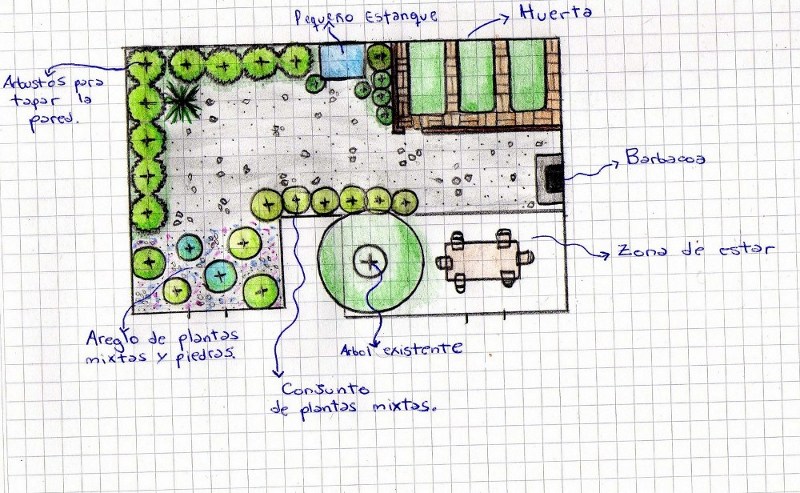 Pequeño Estanque
Huerta
Arbustos para
tapar la
pared.
Barbacoa
Zona de estar
Areglo de plantas
mixtas y piedras.
Arbol existente
Conjunto
de plantas mixtas.